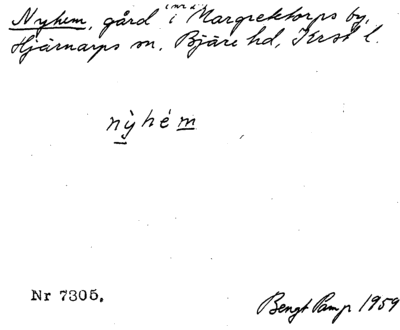 Nyhem, gård i Margretetorps by,
Hjärnarps sn, Bjäre hd, Krst l.
nỳhém
Nr 7305.
Bengt Pamp 1959